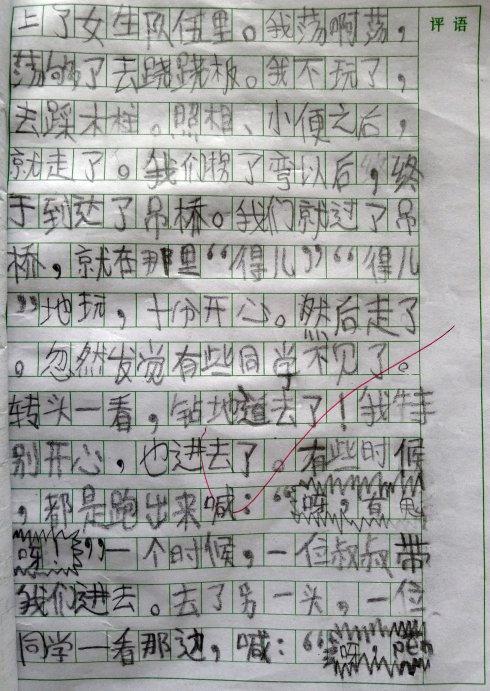 评语
上了女生队伍里。我荡啊荡，
荡够了去跷跷板。我不玩了，
去踩木柱，照相、小便之后，
就走了。我们拐了弯以后，终
于到达了吊桥。我们就过了吊
桥，就在那里“得儿”“得儿
”地玩，十分开心。然后走了
。忽然发觉有些同学不见了。
转头一看，钻地道去了！我特
别开心，也进去了。有些时候
，都是跑出来喊：“呀，有鬼
呀！”一个时候，一位叔叔带
我们进去。去了另一头，一位
同学一看那边，喊：“呀，